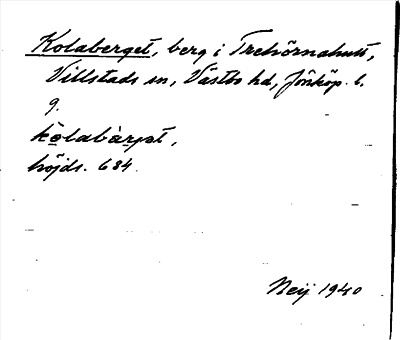 Kolaberget, berg i Trehörnahult,
Villstads sn, Västbo hd, Jönköp. l.
9.
kolabàrjet,
höjds. 684.
Neij 1940